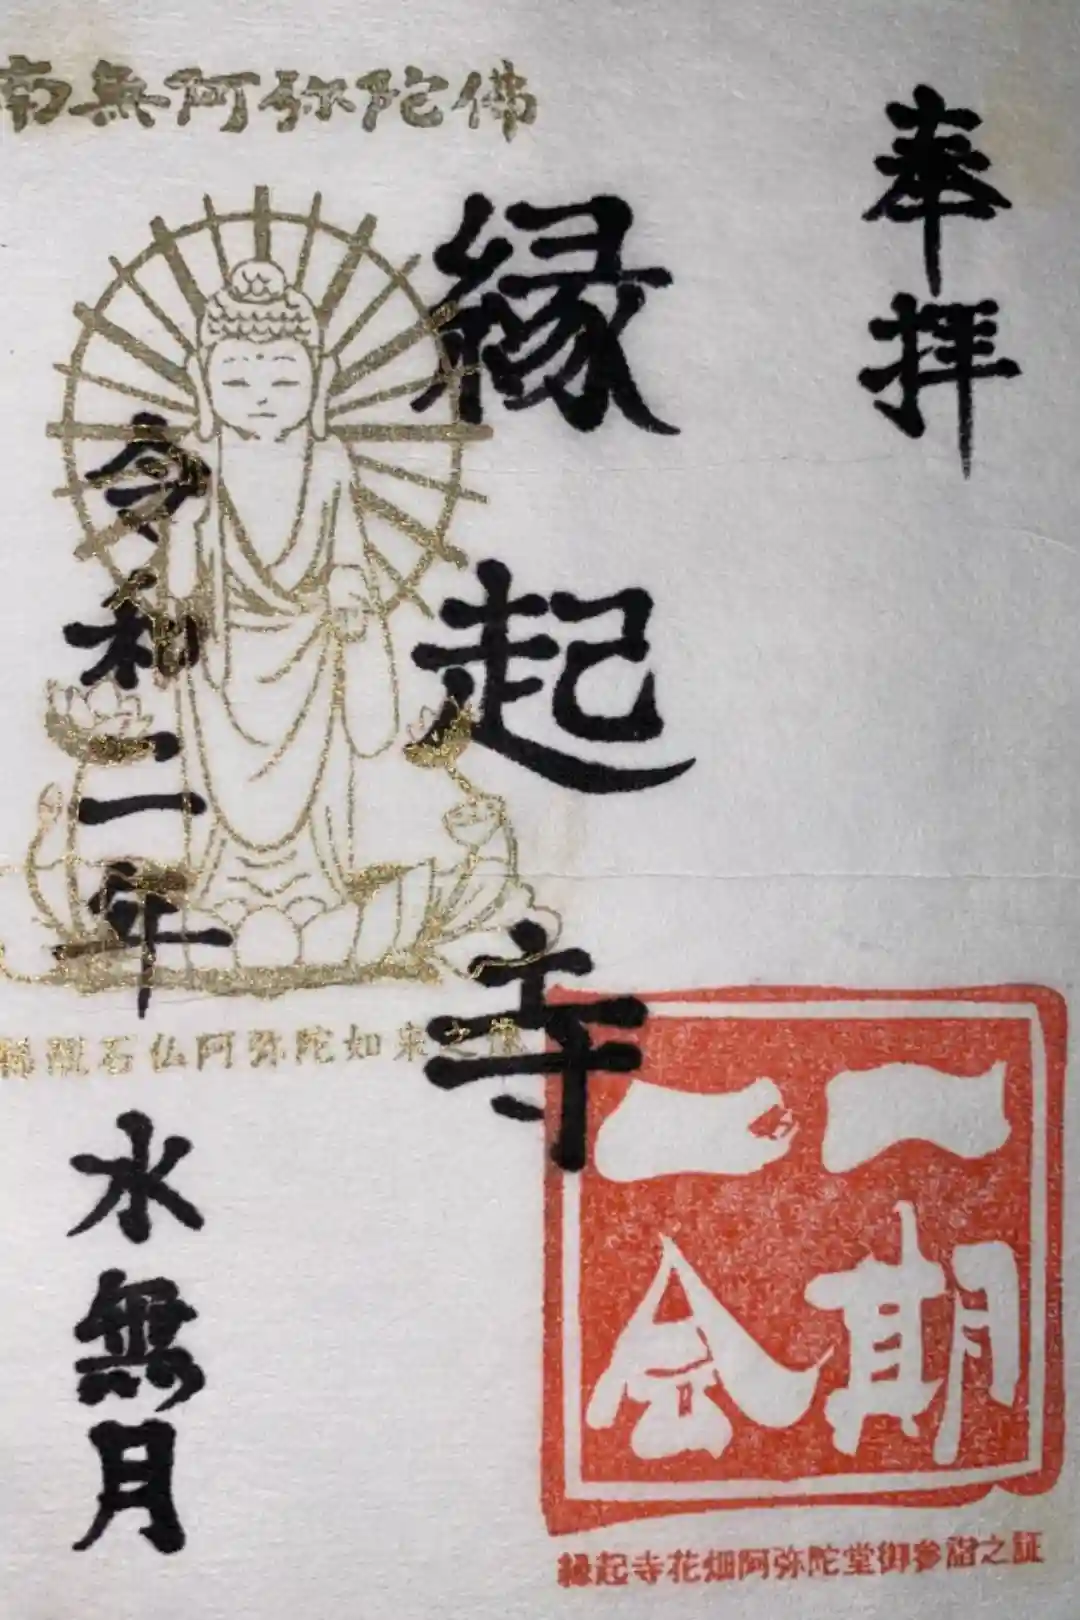 奉拝
縁起寺
南無阿弥陀佛
令和二年
水無月
石仏阿弥陀如来之像
一期
一会
縁起寺花畑阿弥陀堂御参詣之証